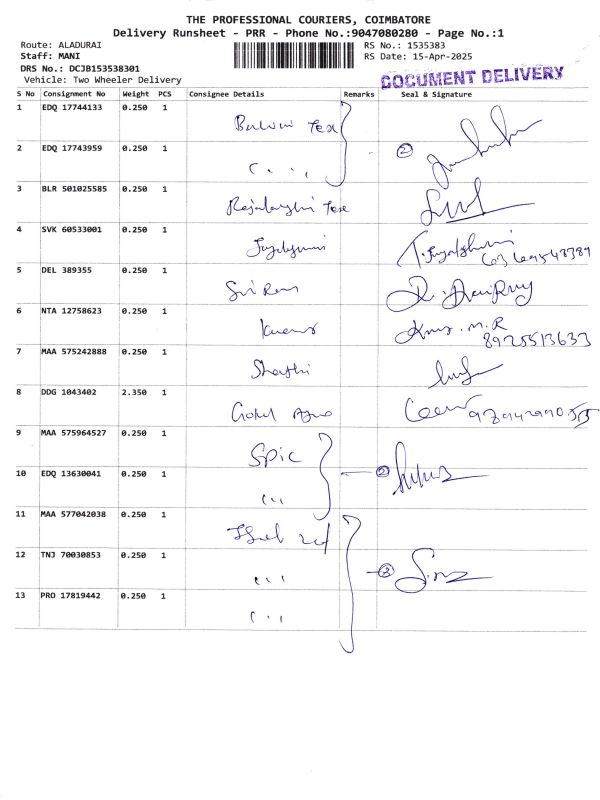 THE PROFESSIONAL COURIERS, COIMBATORE
Delivery Runsheet - PRR - Phone No.:9047080280 - Page No.:1
Route: ALADURAI
RS No.: 1535383
Staff: MANI
RS Date: 15-Apr-2025
DRS No.: DCJB153538301
Vehicle: Two Wheeler Delivery
DOCUMENT DELIVERY
S No Consignment No Weight PCS Consignee Details Remarks Seal & Signature
1 EDQ 17744133 0.250 1
2 EDQ 17743959 0.250 1 2
3 BLR 501025585 0.250 1
4 SVK 60533001 0.250 1
5 DEL 389355 0.250 1 Sri Ram
6 NTA 12758623 0.250 1
8925513633
7 MAA 575242888 0.250 1
8 DDG 1043402 2.350 1
9 MAA 575964527 0.250 1 Spic
10 EDQ 13630041 0.250 1 2
11 MAA 577042038 0.250 1
12 TNJ 70030853 0.250 1 3
13 PRO 17819442 0.250 1